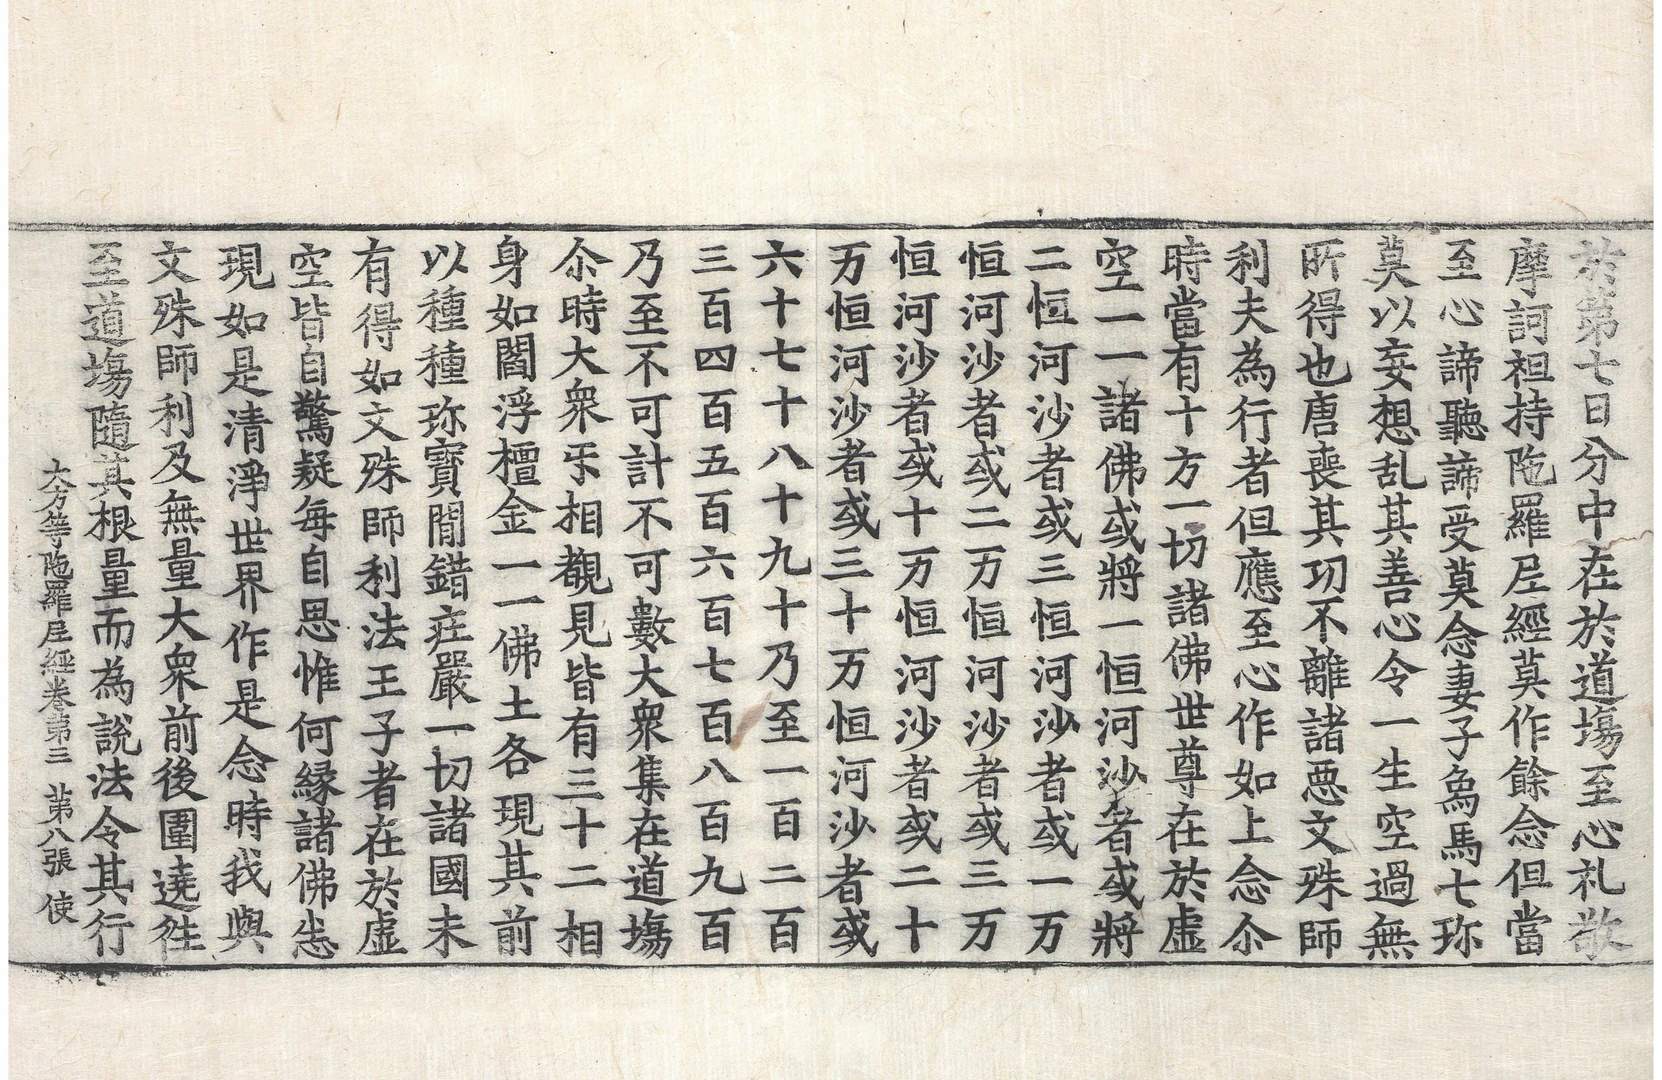 於第七日分中在於道塲至心礼敬
摩訶袒持陁羅𡰱經莫作餘念但當
至心諦聽諦受莫念妻子烏馬七珎
莫以妄想乱其善心令一生空過無
所得也唐喪其功不離諸惡文殊師
利夫為行者但應至心作如上念尒
時當有十方一切諸佛世尊在於虛
空一一諸佛或將一恒河沙者或將
二恒河沙者或三恒河沙者或一万
恒河沙者或二万恒河沙者或三万
恒河沙者或十万恒河沙者或二十
万恒河沙者或三十万恒河沙者或
六十七十八十九十乃至一百二百
三百四百五百六百七百八百九百
乃至不可計不可數大衆集在道塲
尒時大衆㸦相覩見皆有三十二相
身如閻浮檀金一一佛土各現其前
以種種珎寶閒錯庄嚴一切諸國未
有得如文殊師利法王子者在於虛
空皆自驚疑每自思惟何緣諸佛悉
現如是清淨世界作是念時我與
文殊師利及無量大衆前後圍遶徃
至道塲隨其根量而為說法令其行
大方等陁羅𡰱經卷第三 第八張 使